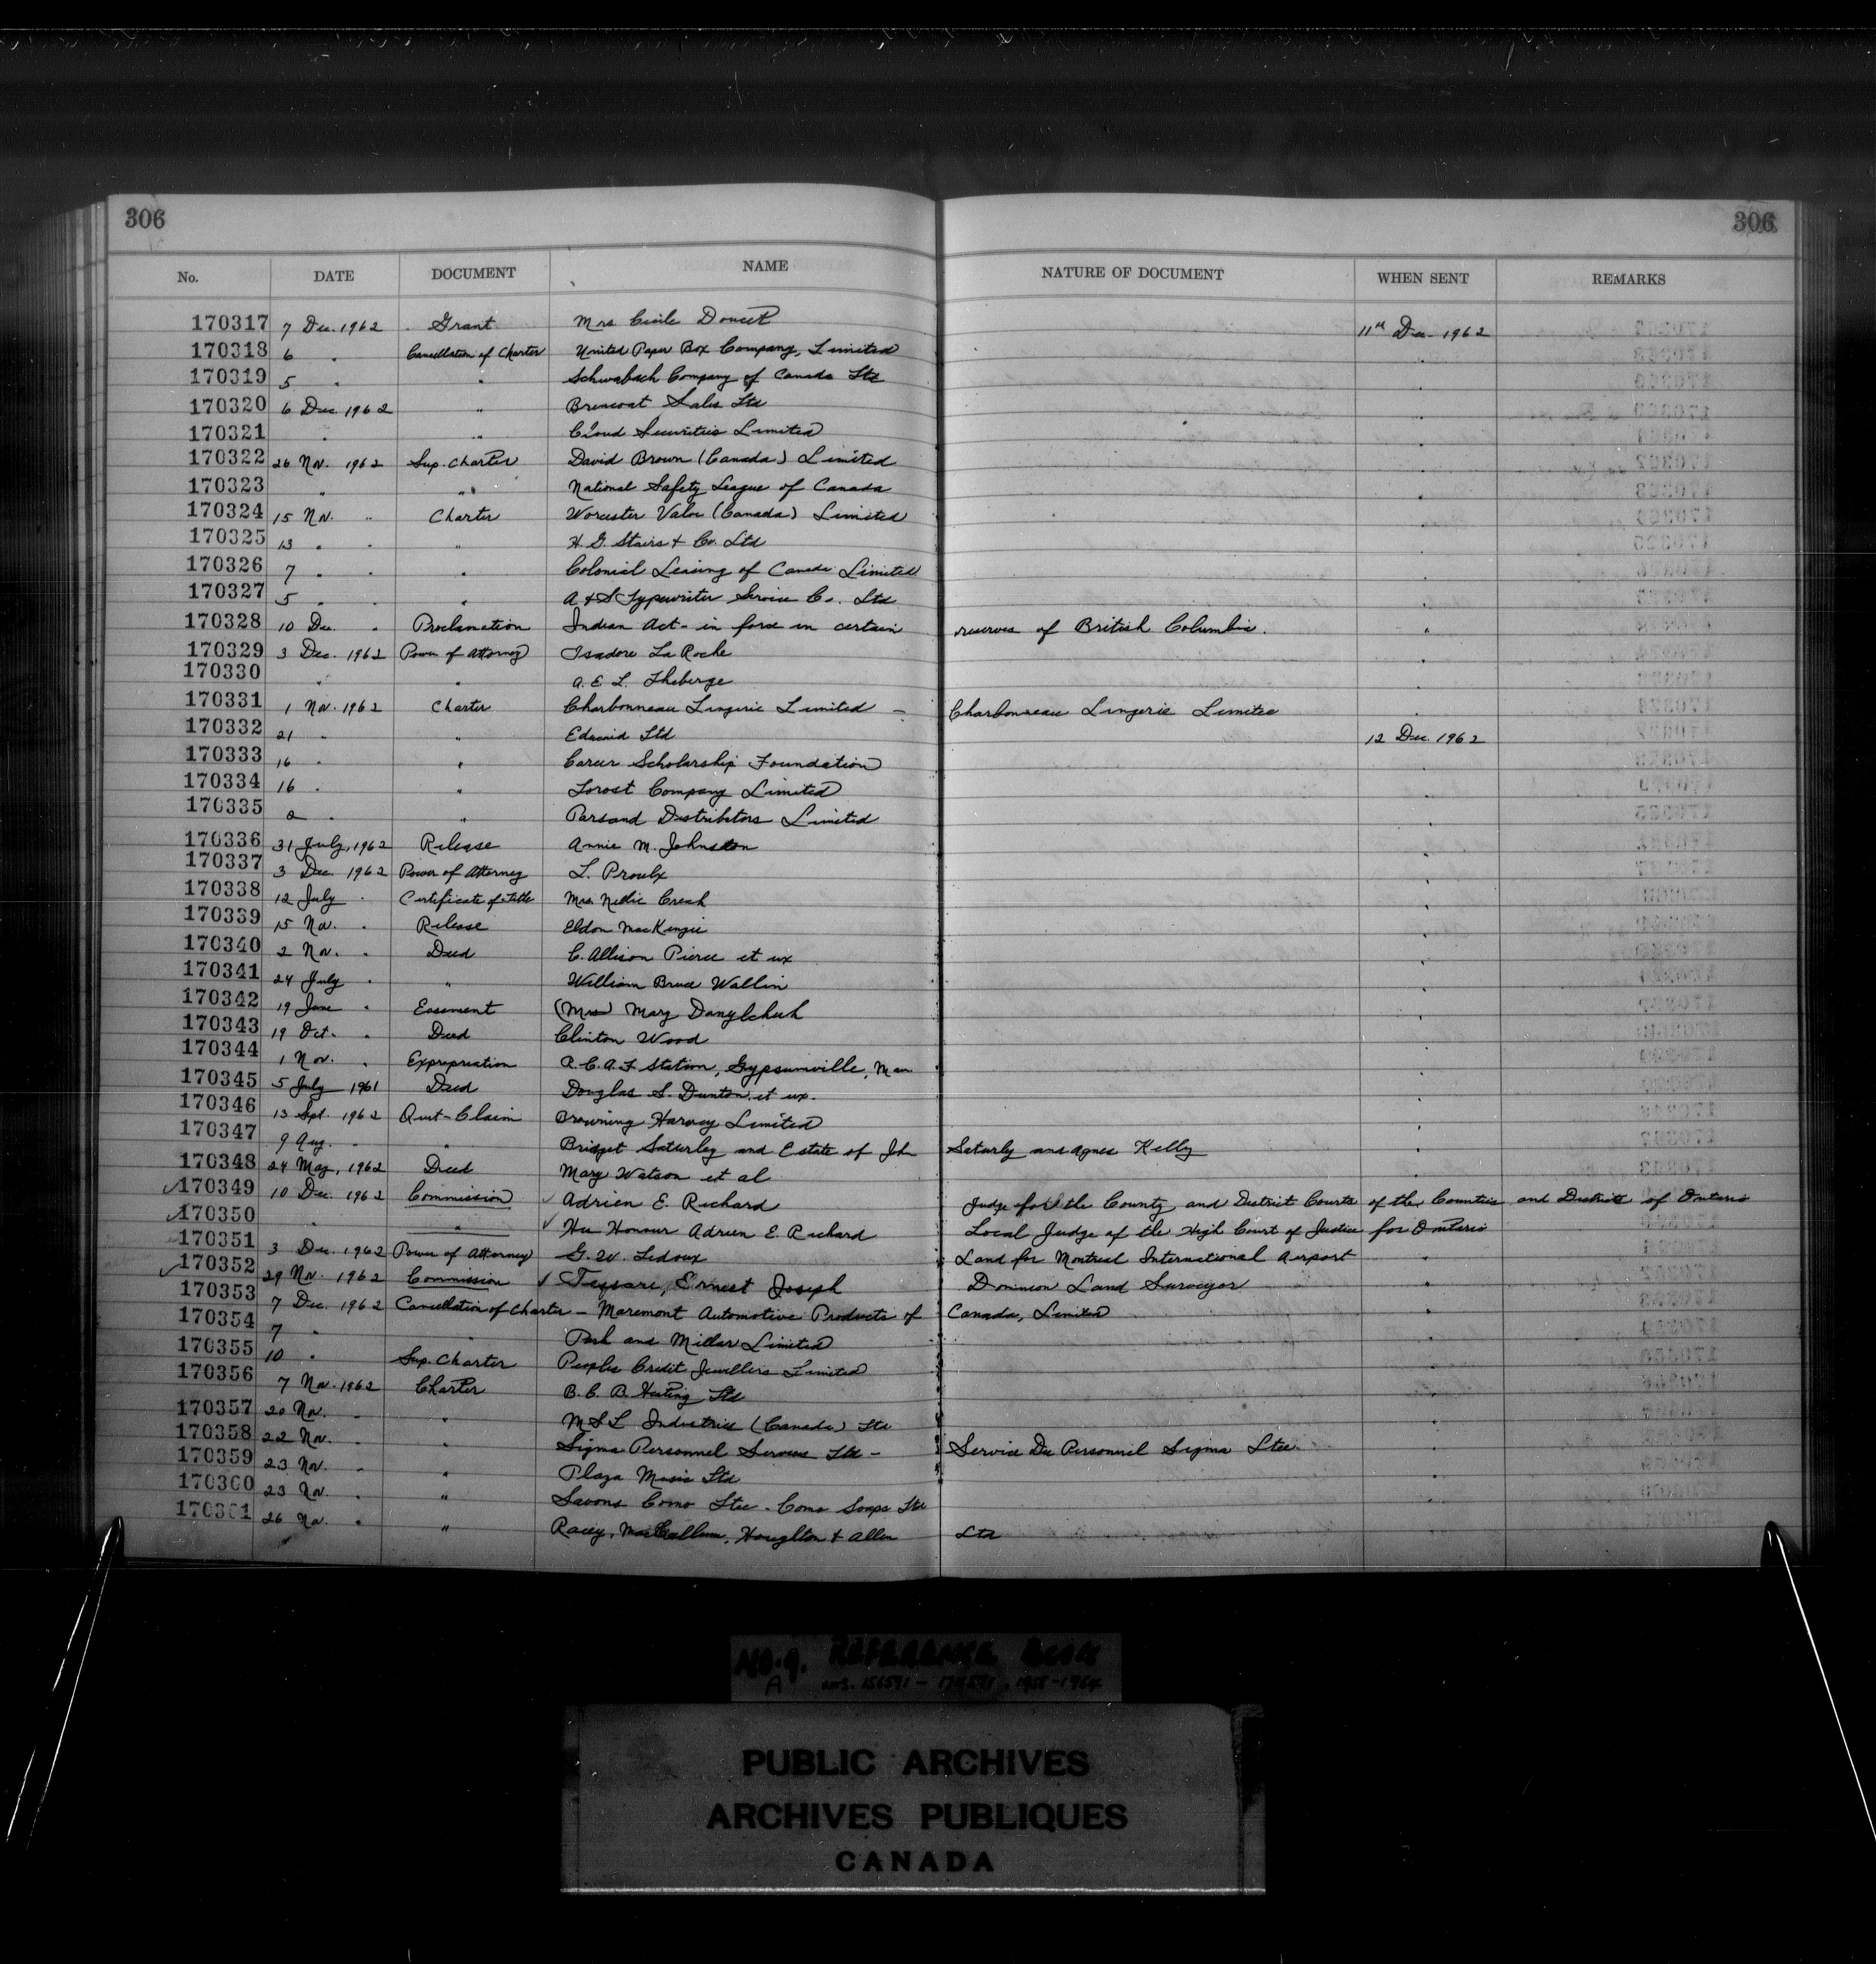 306 306
No. DATE DOCUMENT NAME NATURE OF DOCUMENT WHEN SENT REMARKS
170317 7 Dec. 1962 Grant Mrs Cecile Doucet 11th Dec 1962
170318 6 " Cancellation of Charter United Paper Box Company, Limited "
170319 5 " " Schwabach Company of Canada Ltd "
170320 6 Dec 1962 " Brencoat Sales Ltd "
170321 " " Cloud Securities Limited "
170322 26 Nov. 1962 Sup. Charter David Brown (Canada) Limited "
170323 " " National Safety League of Canada "
170324 15 Nov. " Charter Worcester Valve (Canada) Limited "
170325 13 " " " H. G. Stairs & Co. Ltd "
170326 7 " " " Colonial Leasing of Canada Limited "
170327 5 " " " A & S Typewriter Service Co. Ltd "
170328 10 Dec. " Proclamation Indian Act - in force in certain reserves of British Columbia. "
170329 3 Dec. 1962 Power of Attorney Isadore La Roche "
170330 " " A. E. L. Theberge "
170331 1 Nov. 1962 Charter Charbonneau Lingerie Limited - Charbonneau Lingerie Limitee "
170332 21 " " Ltd 12 Dec. 1962
170333 16 " " Career Scholarship Foundation "
170334 16 " " Torost Company Limited "
170335 2 " " Parsand Distributors Limited "
170336 31 July, 1962 Release Annie M. Johnston "
170337 3 Dec. 1962 Power of Attorney L. Proulx "
170338 12 July " Certificate of Title Mrs. Nellie Creah "
170339 15 Nov. " Release Eldon MacKenzie "
170340 2 Nov. " Deed C. Allison Pierce et ux "
170341 24 July " " William Bruce Wallin "
170342 19 June " Easement (Mrs) Mary Danylchuk "
170343 19 Oct. " Deed Clinton Wood "
170344 1 Nov. " Expropriation R.C.A.F Station, Gypsumville, Man "
170345 5 July 1961 Deed Douglas S. Dunton et ux. "
170346 13 Sept. 1962 Quit-Claim Browning Harvey Limited "
170347 9 Aug. " " Bridget Saturley and Estate of Jhn Saturly and Agnes Kelly "
170348 24 May, 1962 Deed Mary Watson et al "
170349 10 Dec. 1962 Commission Adrien E. Richard Judge of the County and District Courts of the Counties and Districts of Ontario
170350 " " His Honour Adrien E. Richard Local Judge of the High Court of Justice for Ontario
170351 3 Dec. 1962 Power of Attorney G. W. Ledoux Land for Montreal International Airport "
170352 29 Nov. 1962 Commission Tessari, Ernest Joseph Dominion Land Surveyor "
170353 7 Dec. 1962 Cancellation of Charter - Maremont Automotive Products of Canada, Limited "
170354 7 " " Park and Millar Limited "
170355 10 " Sup. Charter Peoples Credit Jewellers Limited "
170356 7 Nov. 1962 Charter B. C. B. Heating Ltd "
170357 20 Nov. " " M S L Industries (Canada) Ltd "
170358 22 Nov. " " Sigma Personnel Services Ltd - Service De Personnel Sigma Ltee. "
170359 23 Nov. " " Plaza Music Ltd "
170360 23 Nov. " " Savons Como Ltee - Como Soaps Ltd "
170361 26 Nov. " " Racey, MacCallum, Houghton & Allen Ltd
NO. 9. REFERENCE BOOK
A nos. 156591 - 174591, 1958-1964
PUBLIC ARCHIVES
ARCHIVES PUBLIQUES
CANADA